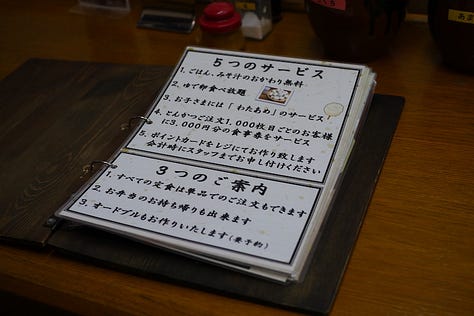 ５つのサービス
1. ごはん、みそ汁のおかわり無料
2. ゆで卵食べ放題
3. お子さまには「わたあめ」のサービス
4. とんかつご注文1,000枚目ごとのお客様
に3,000円分の食事券をサービス
5. ポイントカードをレジにてお作り致します
会計時にスタッフまでお申し付けください
３つのご案内
1. すべての定食は単品でのご注文もできます
2. お弁当のお持ち帰りも出来ます
3. オードブルもお作りいたします(要予約)